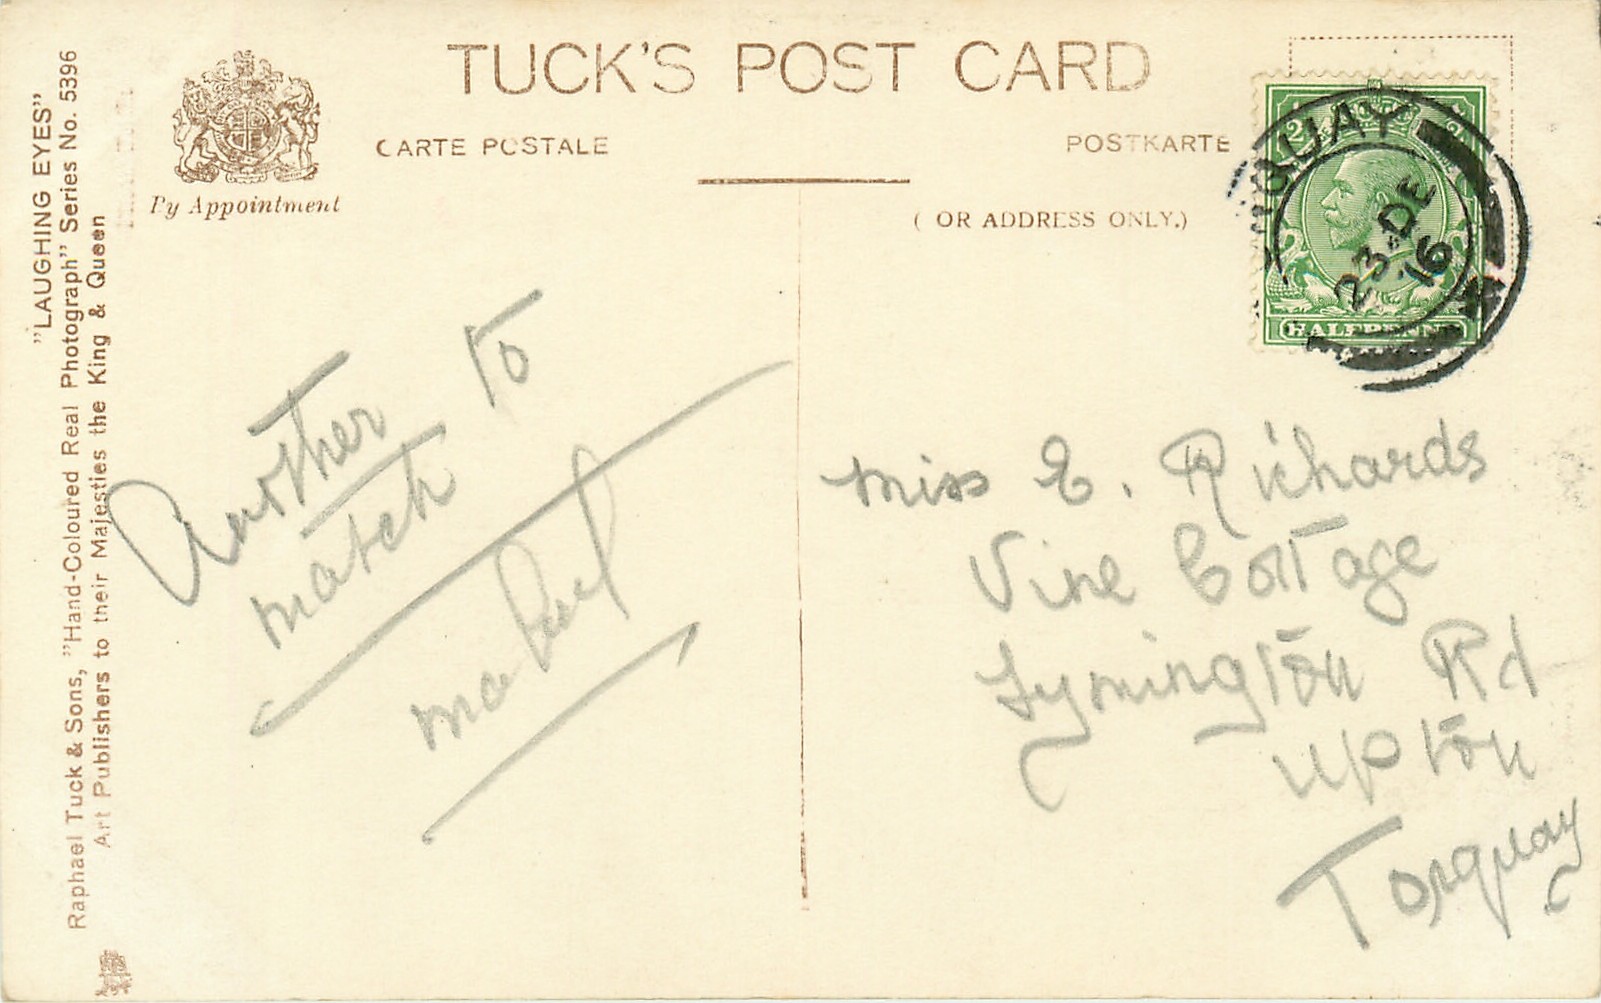 TUCK'S POST CARD
CARTE POSTALE
POSTKARTE
By Appointment
( OR ADDRESS ONLY.)
"LAUGHING EYES"
Raphael Tuck & Sons, "Hand-Coloured Real Photograph" Series No. 5396
Art Publishers to their Majesties the King & Queen
QUAY
23 DE
16
HALFPENNY
Another to
match
Mabel
Miss E. Richards
Vine Cottage
Lymington Rd
Upton
Torquay